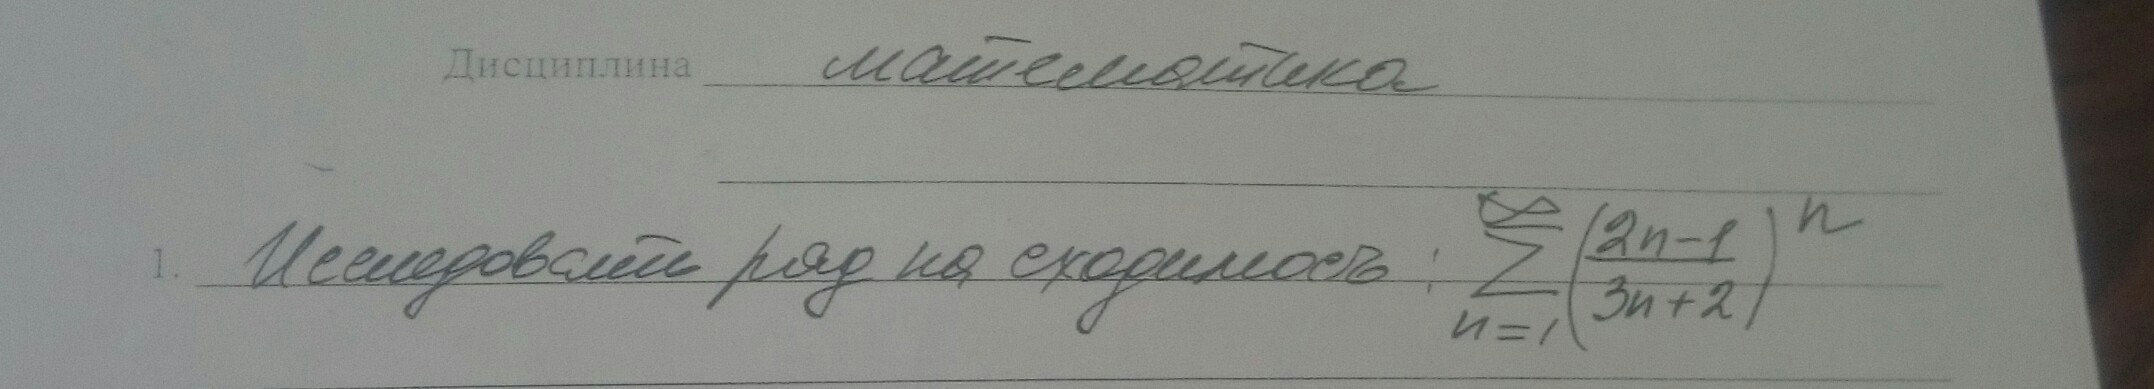 Дисциплина математика
1. Исследовать ряд на сходимость: $\sum_{n=1}^{\infty} \left(\frac{2n-1}{3n+2}\right)^n$